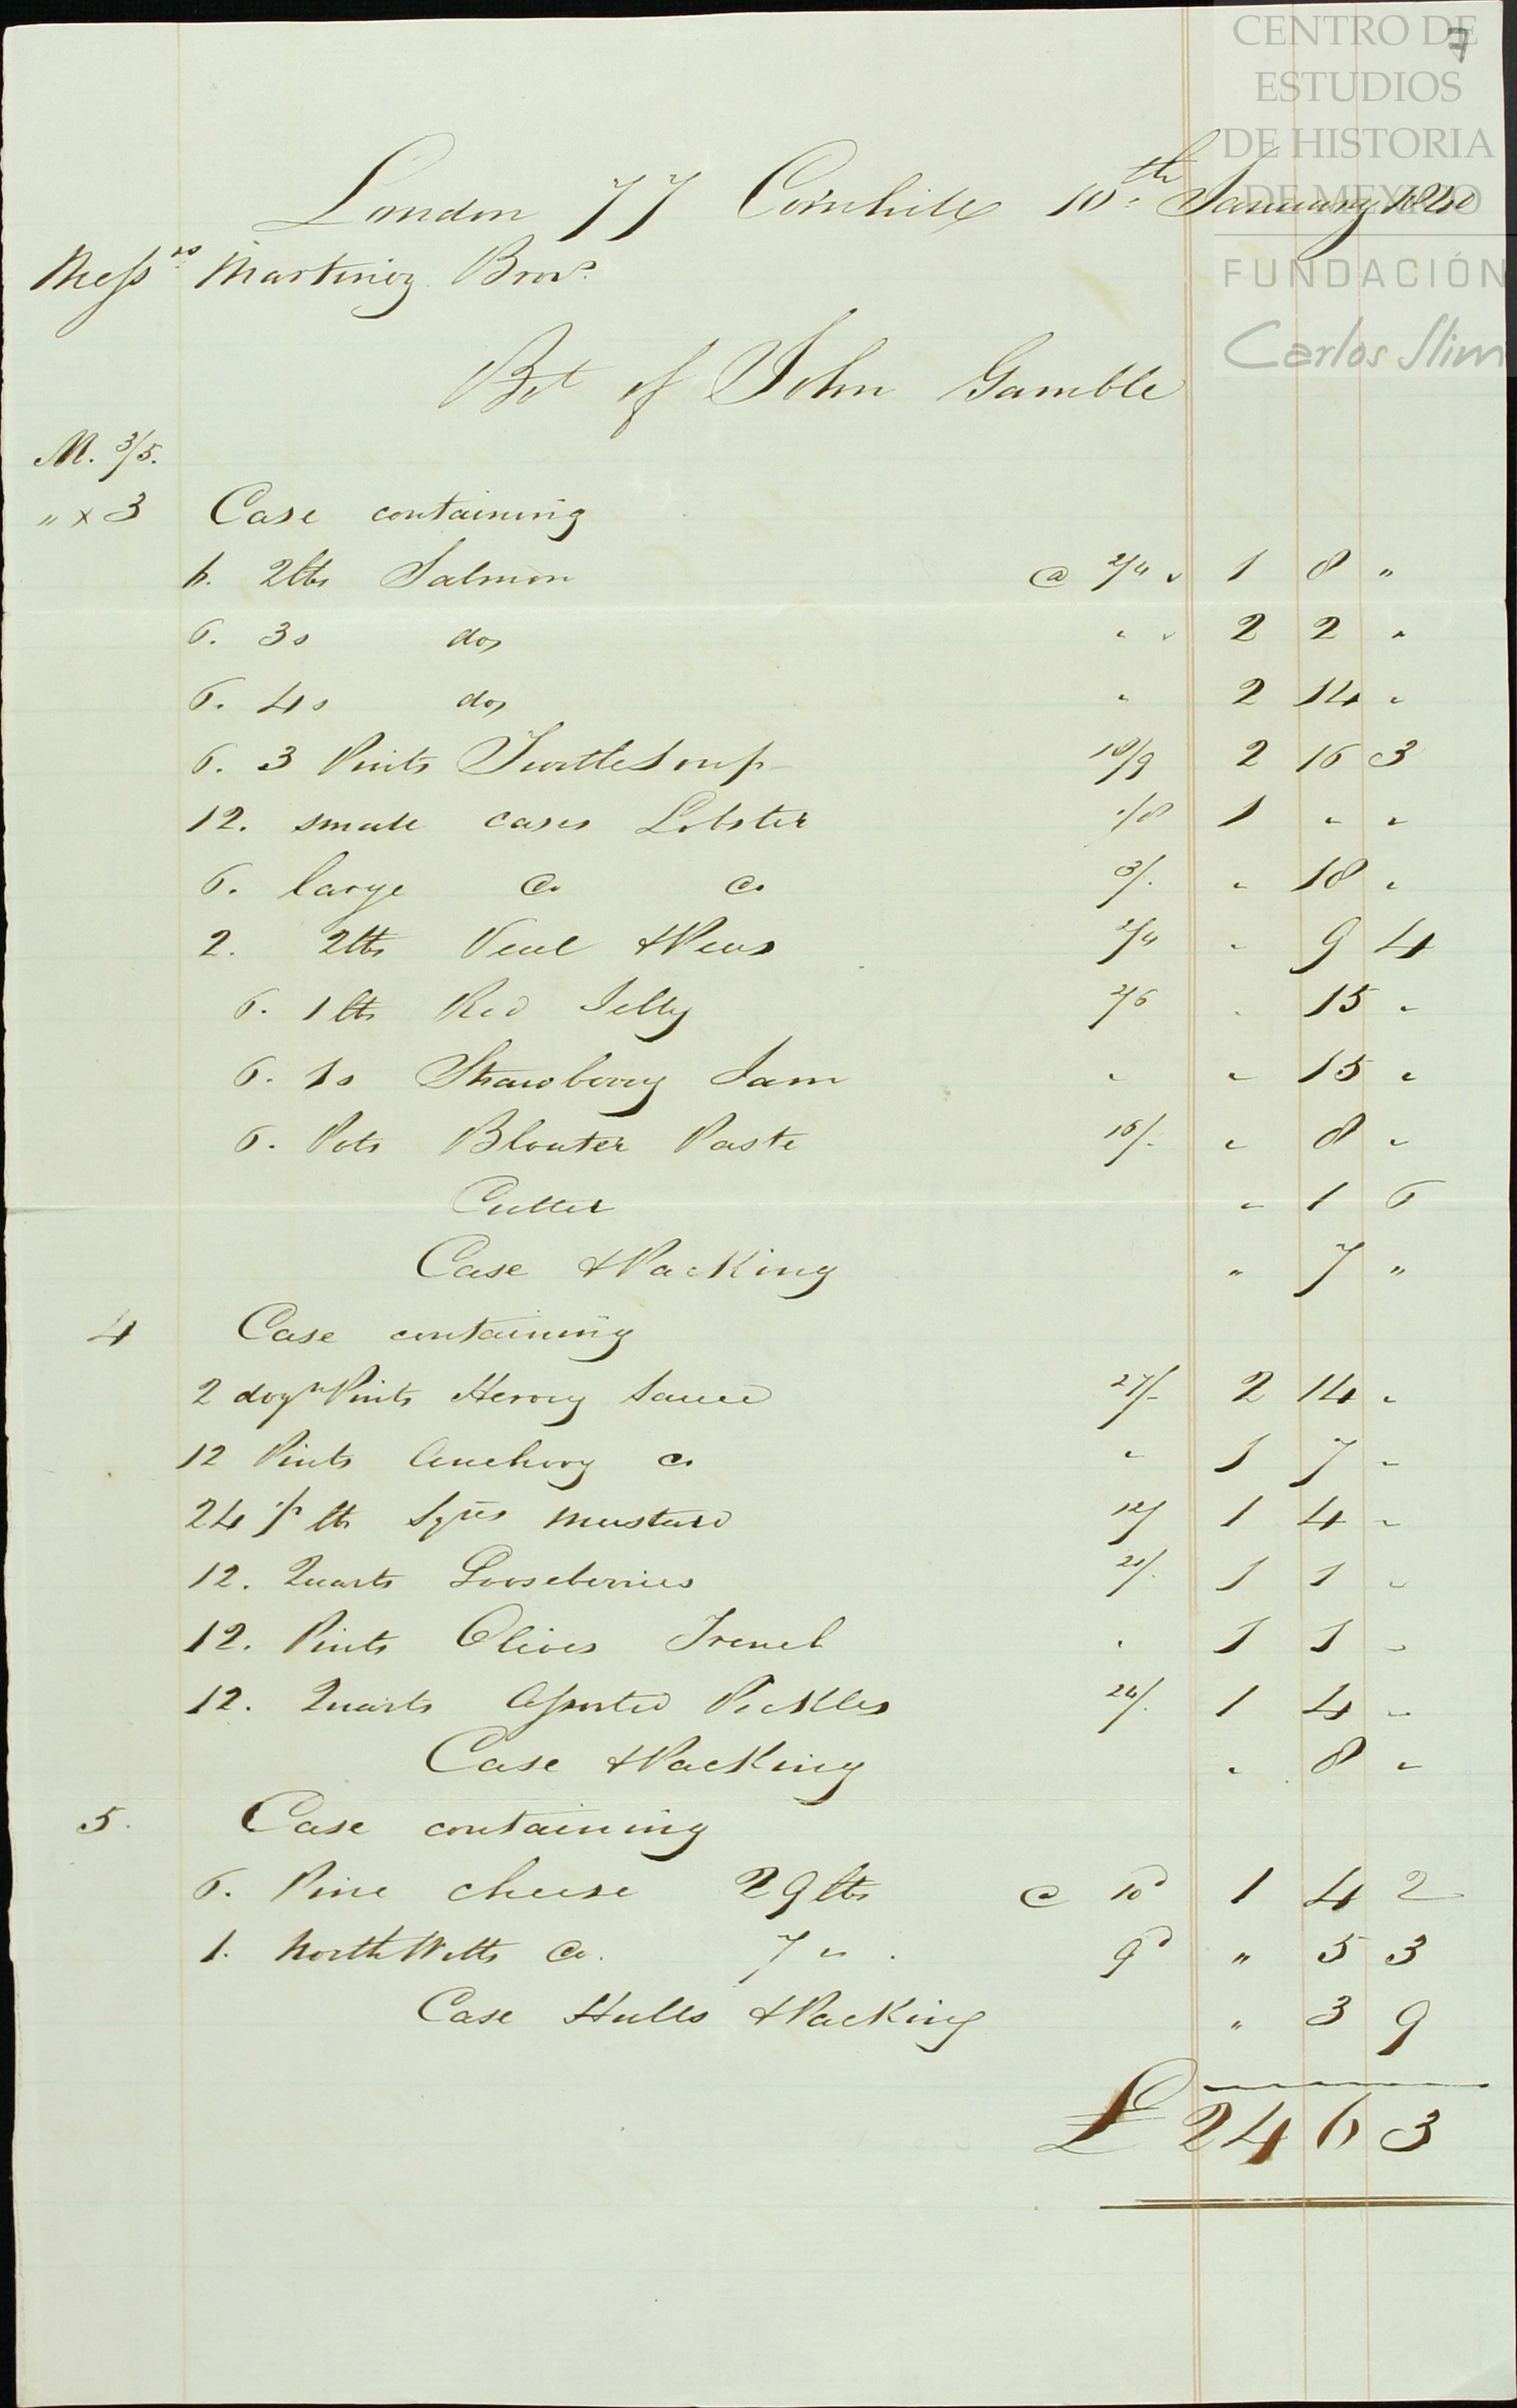 CENTRO DE
ESTUDIOS
DE HISTORIA
DE MEXICO
FUNDACIÓN
Carlos Slim
7
London 77 Cornhill 10th January
Messrs Martinez Bros.
Bot of John Gamble
M. 3/5.
" x 3 Case containing
6. 2lbs Salmon @ 2/4 1 8 "
6. 3s do " 2 2 "
6. 4s do " 2 14 "
6. 3 Pints Turtle Soup 2 16 3
12. small cases Lobster 1/8 1 " "
6. large do do 3/. " 18 "
2. 2lbs Veal & Peas 2/4 " 9 4
6. 1 lb Red Jelly 2/6 " 15 "
6. 1s Strawberry Jam " " 15 "
6. Pots Bloater Paste 16/- " 8 "
Cutter " 1 6
Case & Packing " 7 "
4 Case containing
2 dozn Pints Hervey Sauce 27/- 2 14 "
12 Pints Anchovy do " 1 7 "
24 lb Sqres Mustard 12/ 1 4 "
12. Quarts Gooseberries 21/. 1 1 "
12. Pints Olives French " 1 1 "
12. Quarts Assorted Pickles 24/. 1 4 "
Case & Packing " 8 "
5. Case containing
6. Pine cheese 29 lbs @ 10d 1 4 2
1. North Wilts do. 7 " . 9d " 5 3
Case Hulls & Packing " 3 9
£ 24 6 3